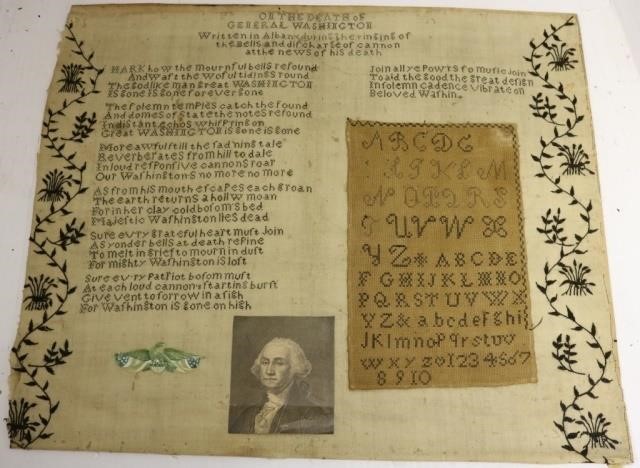 ON THE DEATH OF
GENERAL WASHINGTON
Written in Albany during the ringing of
the bells and discharge of cannon
at the news of his death
HARK how the mournful bells resound
And waft the woful tidings round
The godlike man great WASHINGTON
Is gone is gone forever gone
The solemn temples catch the sound
And domes of state the notes resound
In distant echos whispring on
Great WASHINGTON is gone is gone
More awful still the sad'ning tale
Reverberates from hill to dale
In loud responsive cannons roar
Our Washingtons no more no more
As from his mouth escapes each groan
The earth returns a hollw moan
For in her clay cold bosom's bed
Majestic Washington lies dead
Sure evry grateful heart must join
As yonder bells at death refine
To melt in grief to mourn in dust
For mighty Washington is lost
Sure evry Patriot bosom must
At each loud cannon startins burst
Give vent to sorrow in a sigh
For Washington is gone on high
Join all ye Powrs of music join
To aid the good the great design
In solemn cadence vibrate on
Beloved Washin
A B C D G
I K L M
N O P Q R S
T U V W X
Y Z & A B C D E
F G H I J K L M N O
P Q R S T U V W X
Y Z & a b c d e f g h i
J K l m n o p q r s t u v
w x y z 0 1 2 3 4 5 6 7
8 9 10